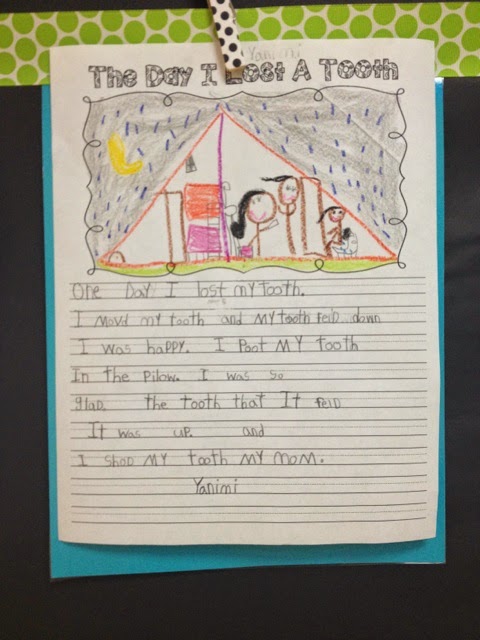 Yanimi
The Day I Lost A Tooth
One Day I lost my tooth.
I movd my tooth and My tooth felD down
I was happy. I Poot MY tooth
In the pilow. I was so
glad. the tooth that It felD
It was up. and
I shod MY tooth MY mom.
Yanimi